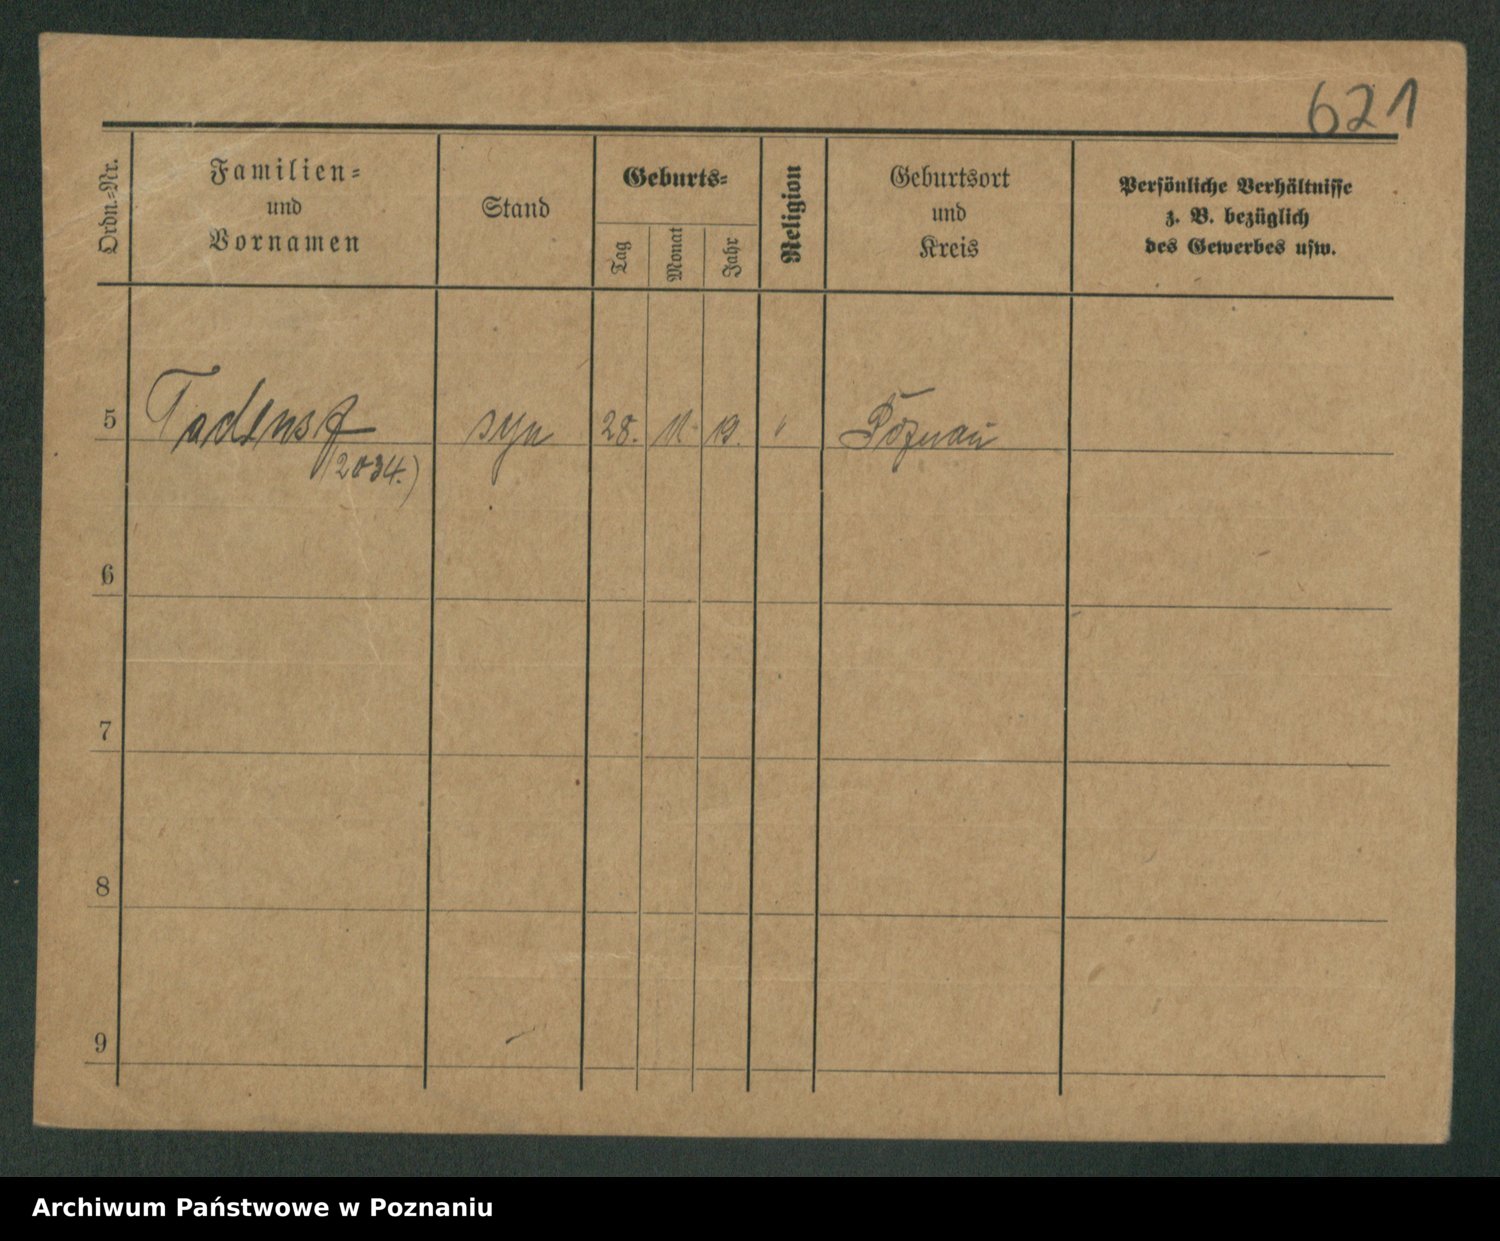 621
Ordn.-Nr.
Familien-
und
Vornamen
Stand
Geburts-
Tag
Monat
Jahr
Religion
Geburtsort
und
Kreis
Persönliche Verhältnisse
z. B. bezüglich
des Gewerbes usw.
5 syn 28. 11. 19. " Poznań
6
7
8
9
Archiwum Państwowe w Poznaniu